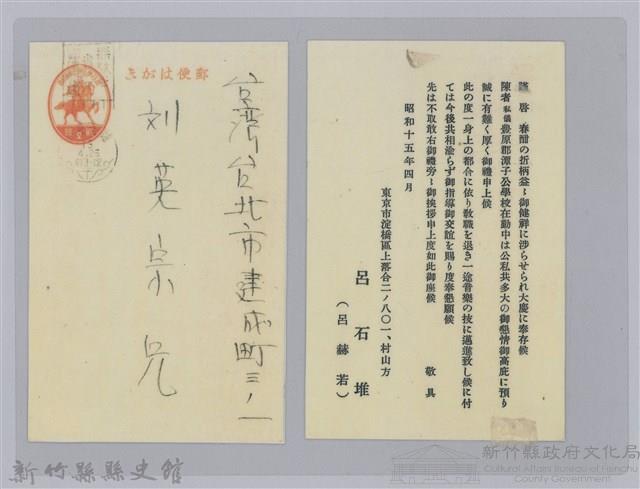 郵便はがき
台湾台北市建成町三ノ一
刘英宗兄
謹啓 春酣の折柄益々御健祥に渉らせられ大慶に奉存候
陳者私儀豊原郡潭子公學校在勤中は公私共多大の御懇情御高庇に預り
誠に有難く厚く御禮申上候
此の度一身上の都合に依り敎職を退き一途音樂の技に邁進致し候に付
ては今後共相渝らず御指導御交誼を賜り度奉懇願候
先は不取敢右御禮旁々御挨拶申上度如此御座候
敬具
昭和十五年四月
東京市淀橋區上落合二ノ八〇一、村山方
呂石堆
(呂赫若)
新竹縣縣史館
新竹縣政府文化局
Cultural Affairs Bureau of Hsinchu
County Government